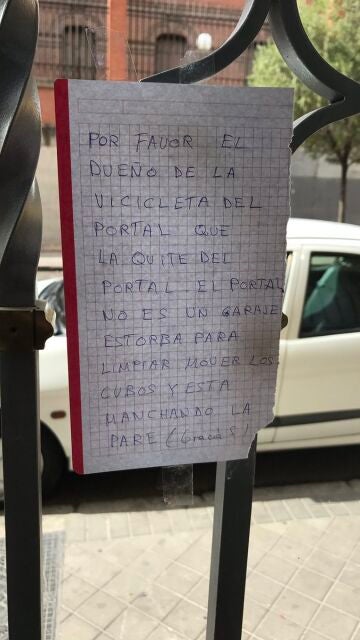 POR FAVOR EL
DUEÑO DE LA
VICICLETA DEL
PORTAL QUE
LA QUITE DEL
PORTAL EL PORTAL
NO ES UN GARAJE
ESTORBA PARA
LIMPIAR MOVER LOS
CUBOS Y ESTA
MANCHANDO LA
PARE (Gracias)